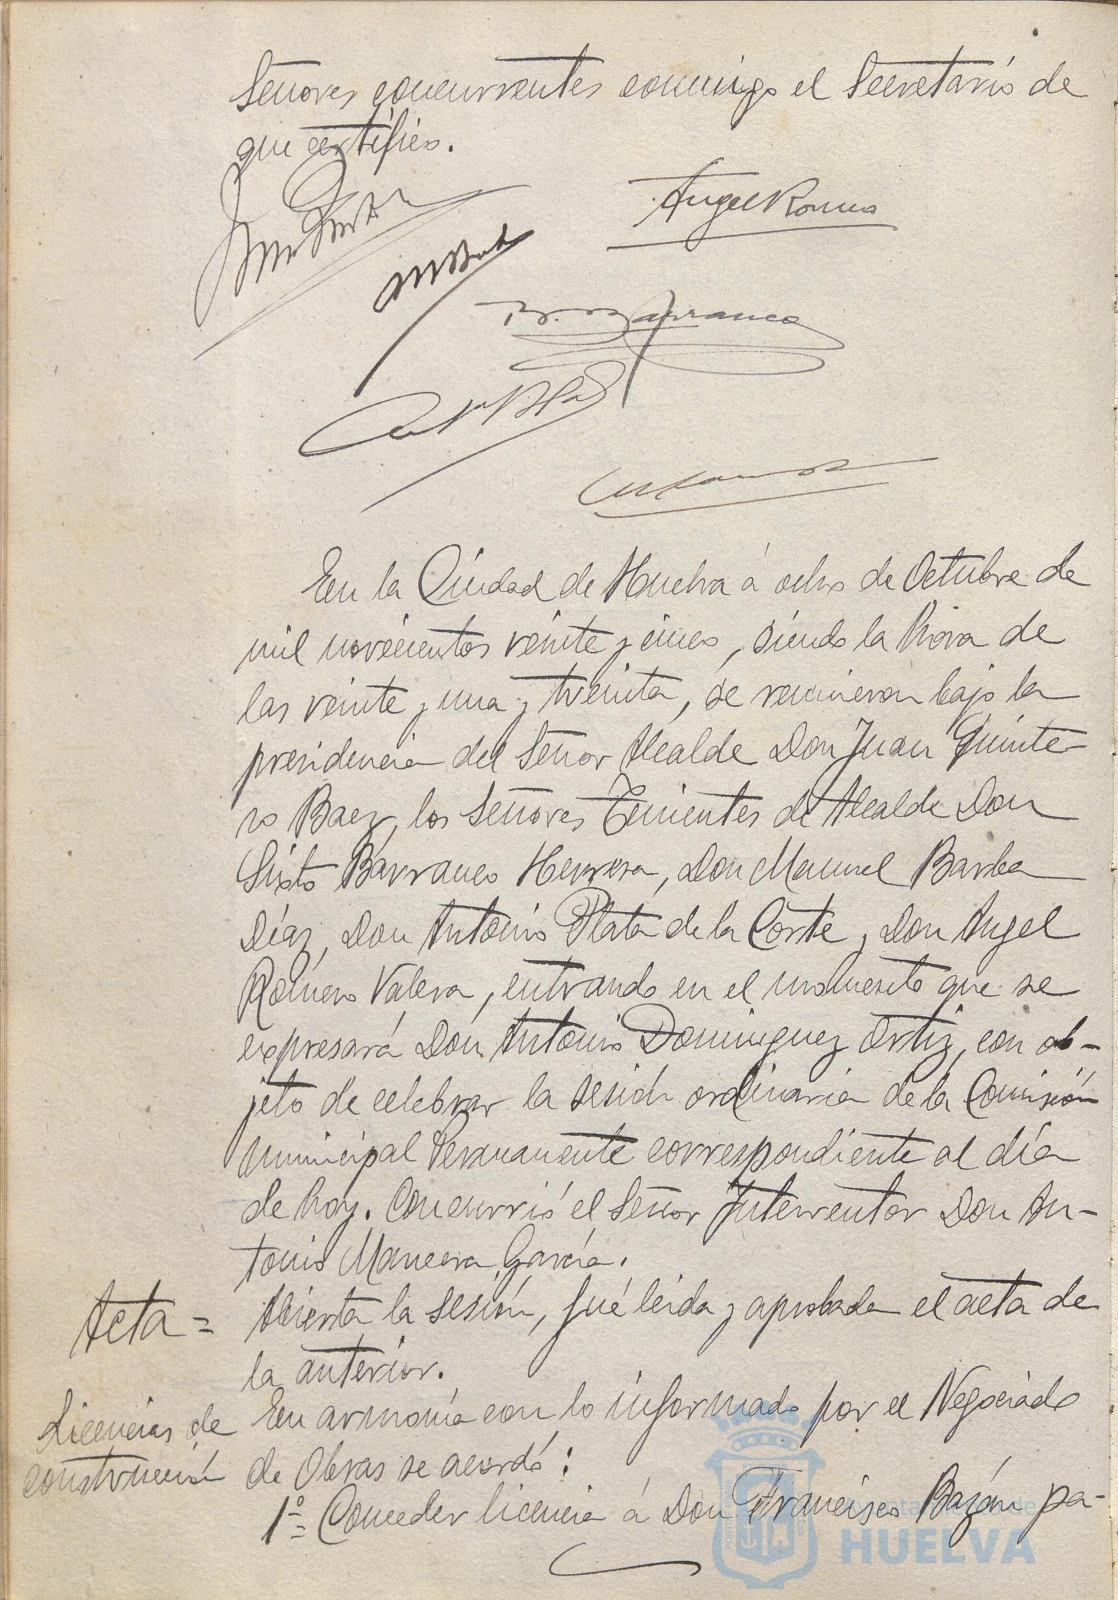 Señores concurrentes conmigo el Secretario de
que certifico.
Angel Romero
B. Barranco
En la Ciudad de Huelva á ocho de Octubre de
mil novecientos veinte y cinco, siendo la hora de
las veinte y una y treinta, se reunieron bajo la
presidencia del Señor Alcalde Don Juan Quinte-
ro Baez, los Señores Tenientes de Alcalde Don
Sixto Barranco Herrera, Don Manuel Barba
Díaz, Don Antonio Plata de la Corte y Don Angel
Romero Valera, entrando en el momento que se
expresará Don Antonio Dominguez Ortiz, con ob-
jeto de celebrar la sesión ordinaria de la Comisión
Municipal Permanente correspondiente al día
de hoy. Concurrió el Señor Interventor Don An-
tonio Mancera García.
Acta = Abierta la sesión, fué leida y aprobada el acta de
la anterior.
Licencias de construcción
En armonía con lo informado por el Negociado
de Obras se acordó:
1º Conceder licencia á Don Francisco Bazán pa-
Ayuntamiento de
HUELVA